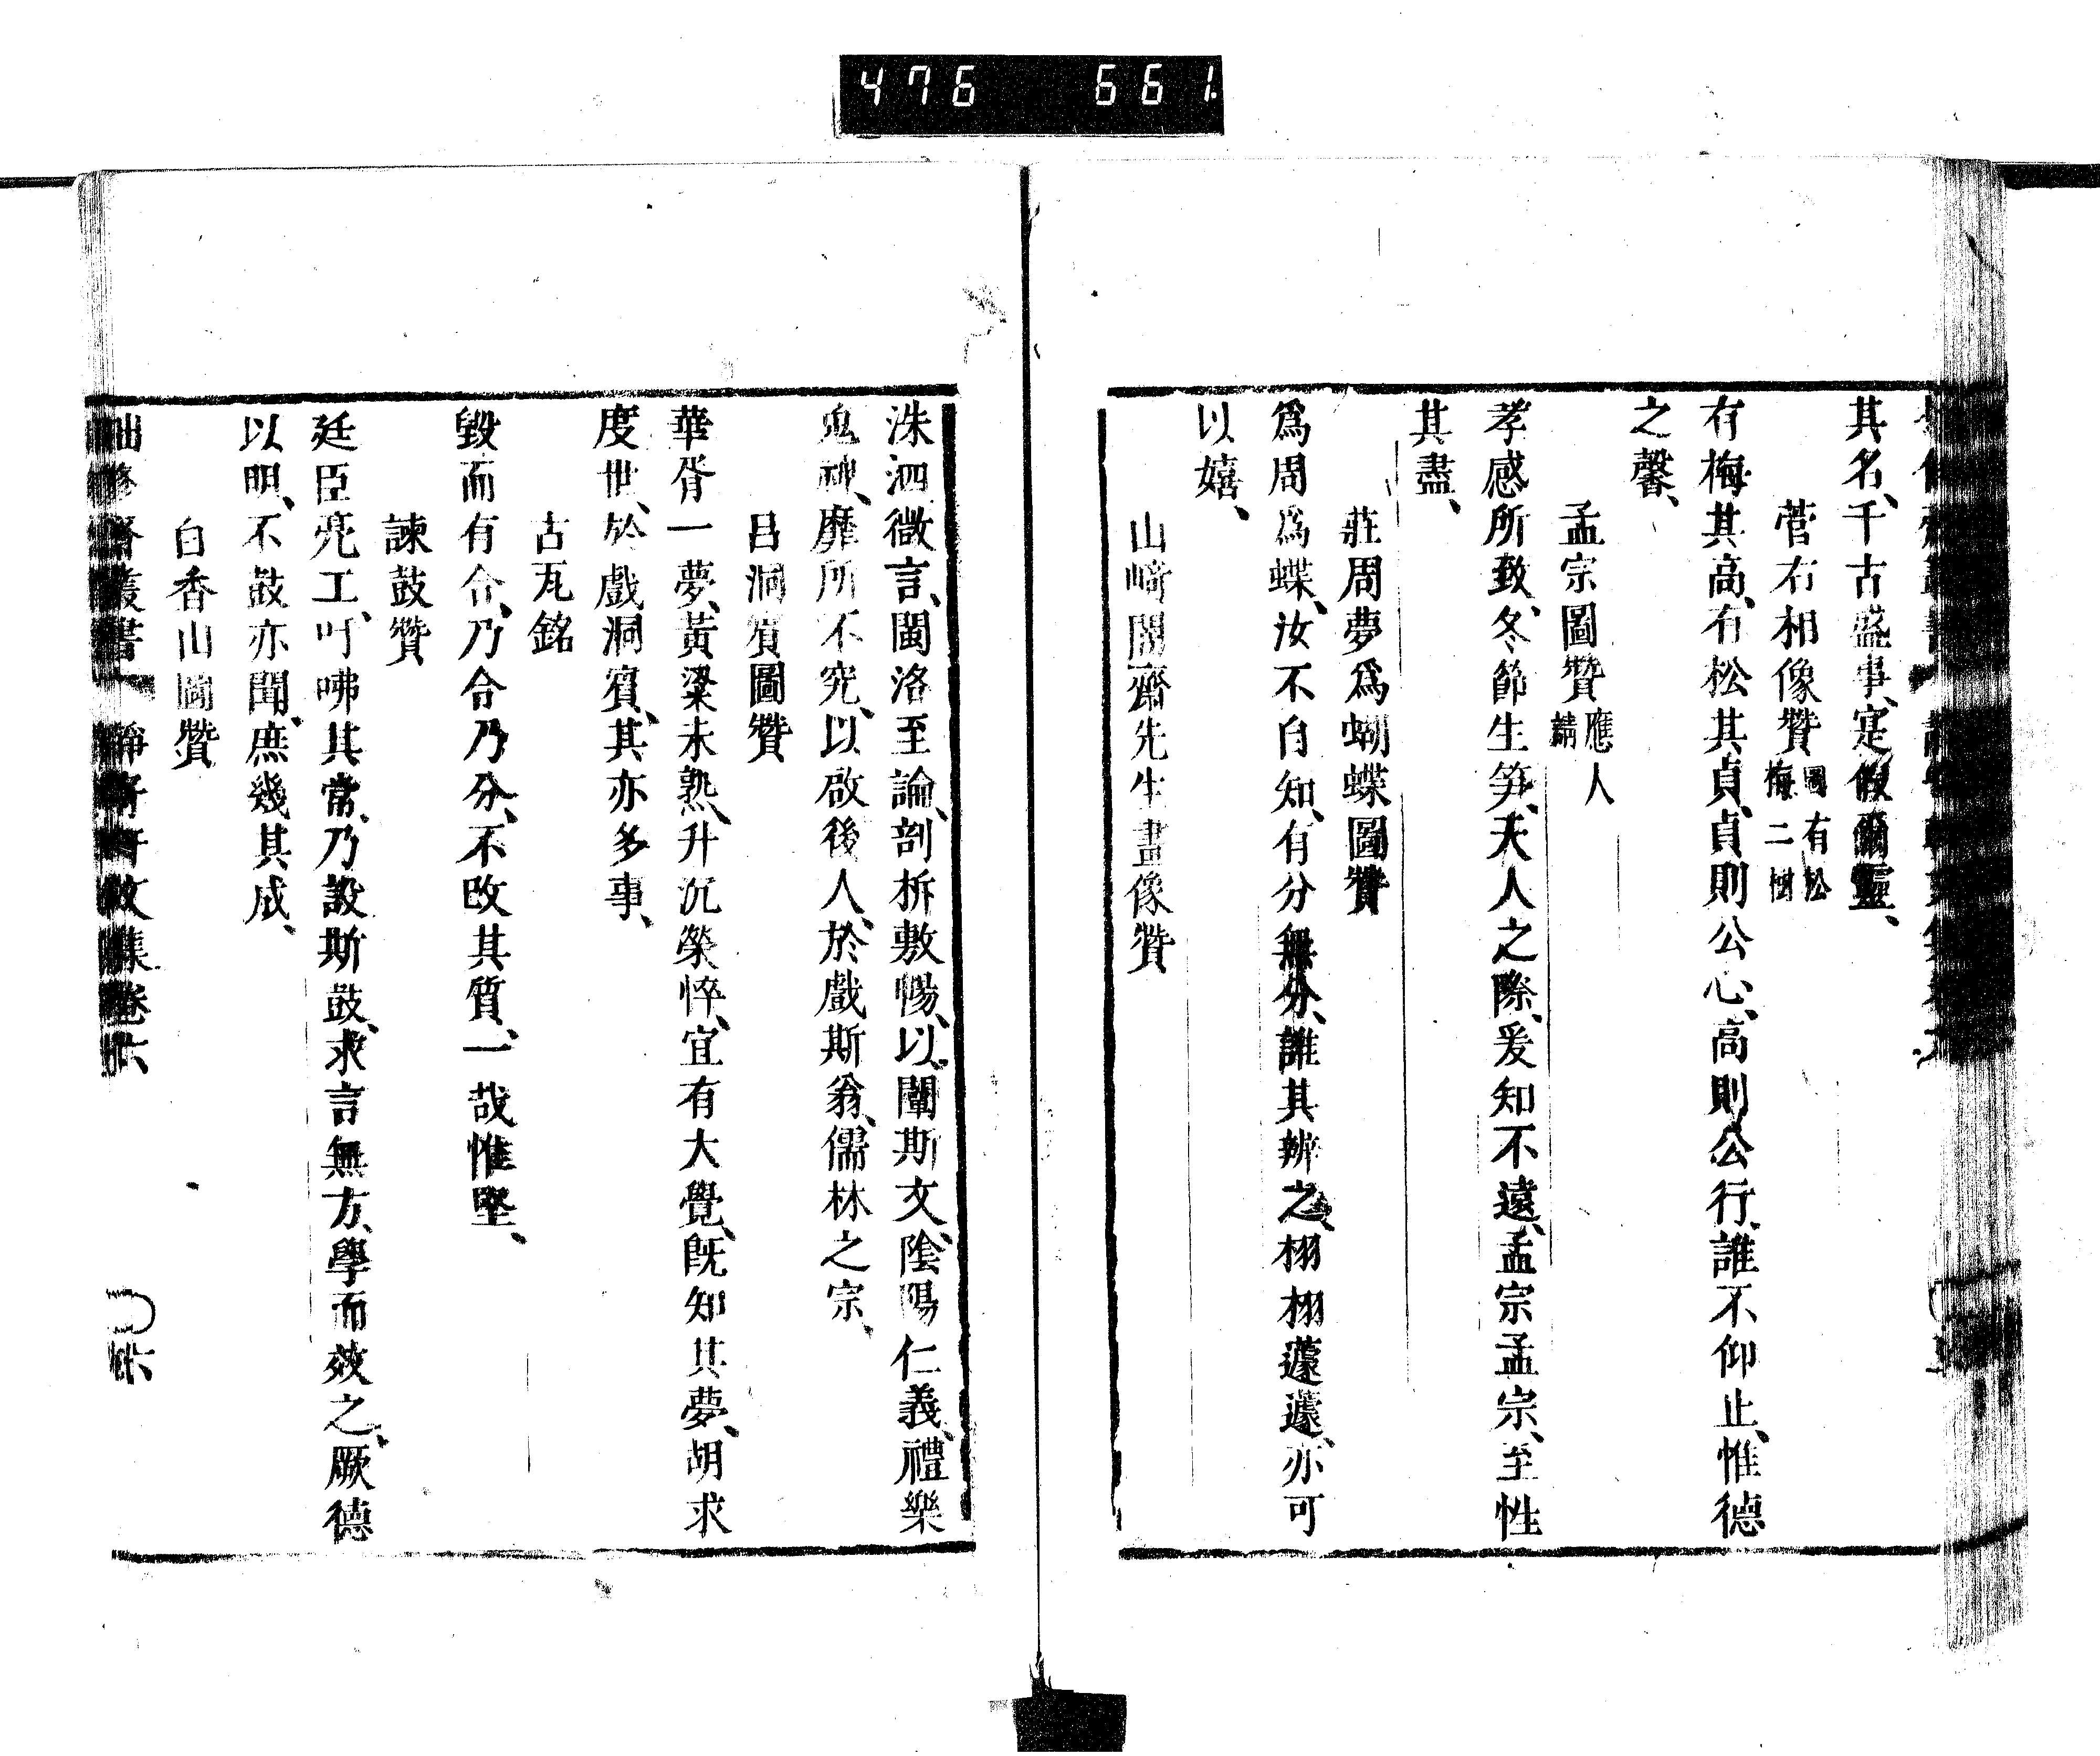 476 661
其名、千古盛事、寔假爾靈、
菅右相像贊圖有松梅二樹
有梅其高、有松其貞、貞則公心、高則公行、誰不仰止、惟德
之馨、
孟宗圖贊應人請
孝感所致、冬節生笋、天人之際、爰知不遠、孟宗孟宗、至性
其盡、
莊周夢爲蝴蝶圖贊
爲周爲蝶、汝不自知、有分無分、誰其辨之、栩栩蘧蘧、亦可
以嬉、
山崎闇齋先生畫像贊
洙泗微言、閩洛至論、剖柝敷暢、以闡斯文、陰陽仁義、禮樂
鬼神、靡所不究、以啟後人、於戲斯翁、儒林之宗、
呂洞賓圖贊
華胥一夢、黃粱未熟、升沉榮悴、宜有大覺、旣知其夢、胡求
度世、於戲洞賓、其亦多事、
古瓦銘
毀而有合、乃合乃分、不改其質、一哉惟堅、
諫鼓贊
廷臣亮工、吁咈其常、乃設斯鼓、求言無方、學而效之、厥德
以明、不鼓亦聞、庶幾其成、
白香山圖贊
拙修齋叢書 精里 文集卷六
六